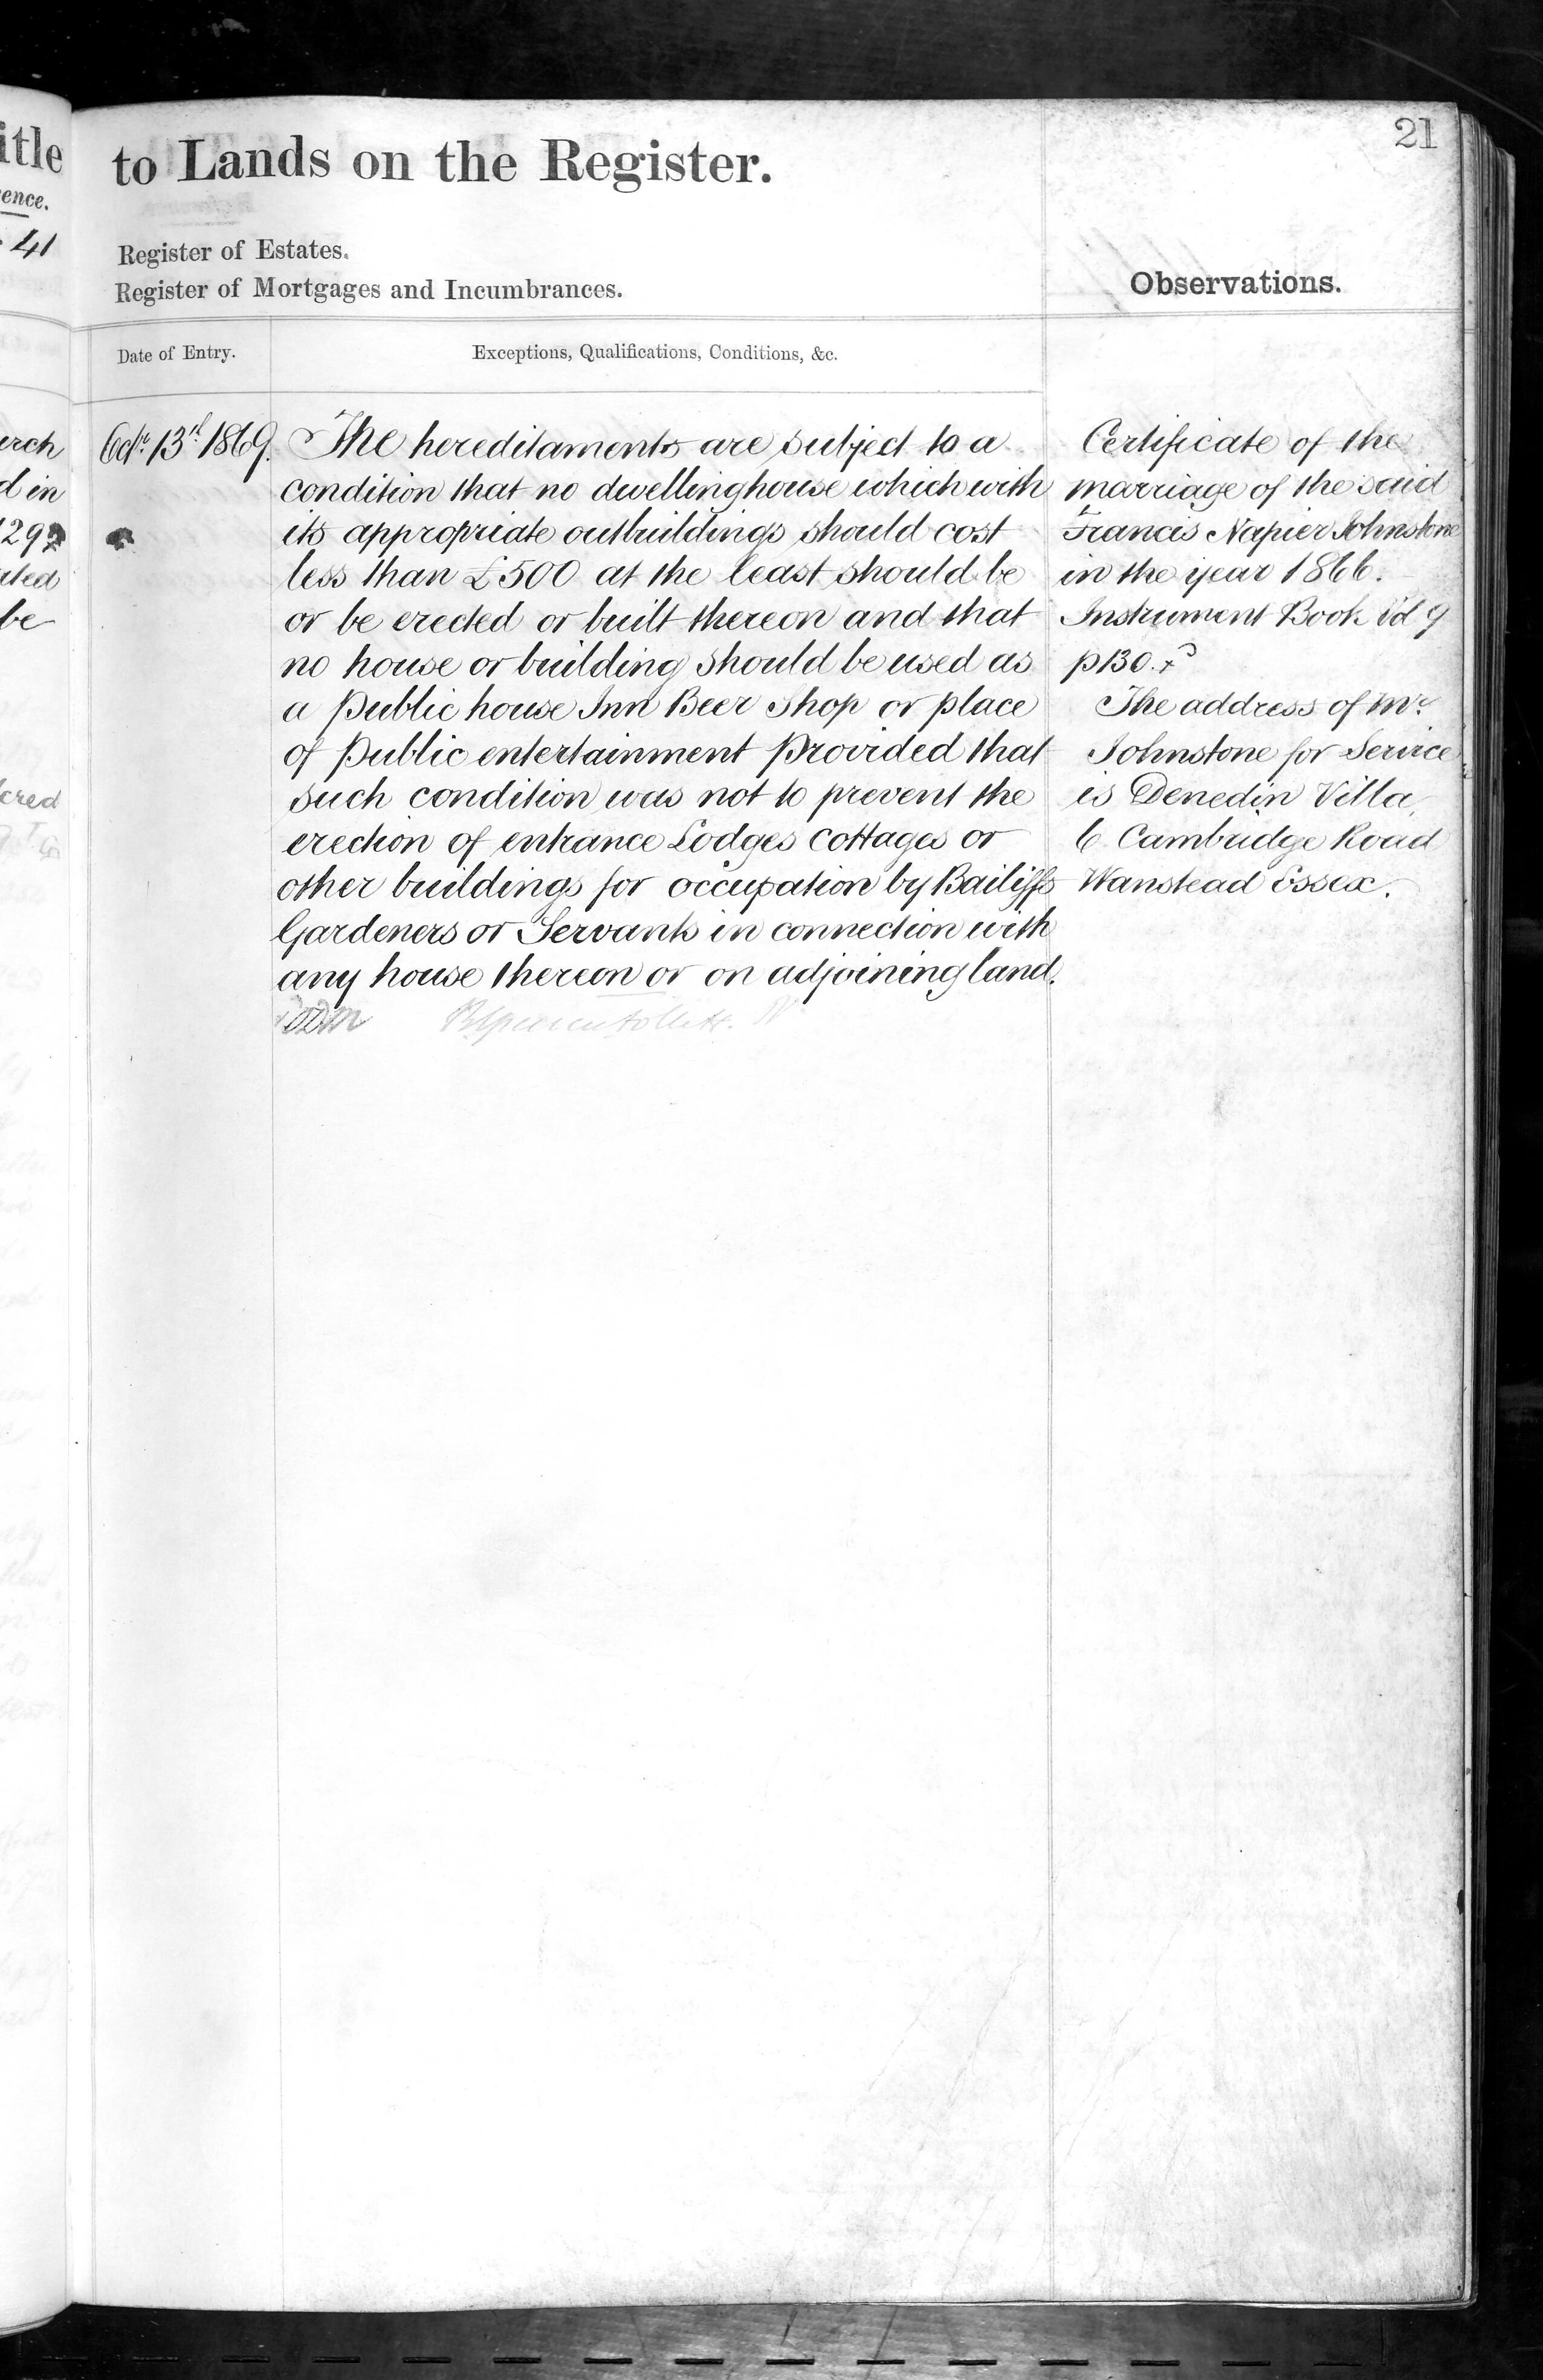 itle
ence.
41
erch
d in
be
to Lands on the Register.
21
Register of Estates.
Register of Mortgages and Incumbrances.
Observations.
Date of Entry.
Exceptions, Qualifications, Conditions, &c.
Octr. 13th 1869.
The hereditaments are subject to a
condition that no dwellinghouse which with
its appropriate outbuildings should cost
less than £500 at the least should be
or be erected or built thereon and that
no house or building should be used as
a Public house Inn Beer Shop or place
of Public entertainment Provided that
such condition was not to prevent the
erection of entrance Lodges Cottages or
other buildings for occupation by Bailiffs
Gardeners or Servants in connection with
any house thereon or on adjoining land.
Certificate of the
marriage of the said
Francis Napier Johnstone
in the year 1866.
Instrument Book Vol 9
p130.
The address of Mr.
Johnstone for Service
is Denedin Villa
6 Cambridge Road
Wanstead Essex.